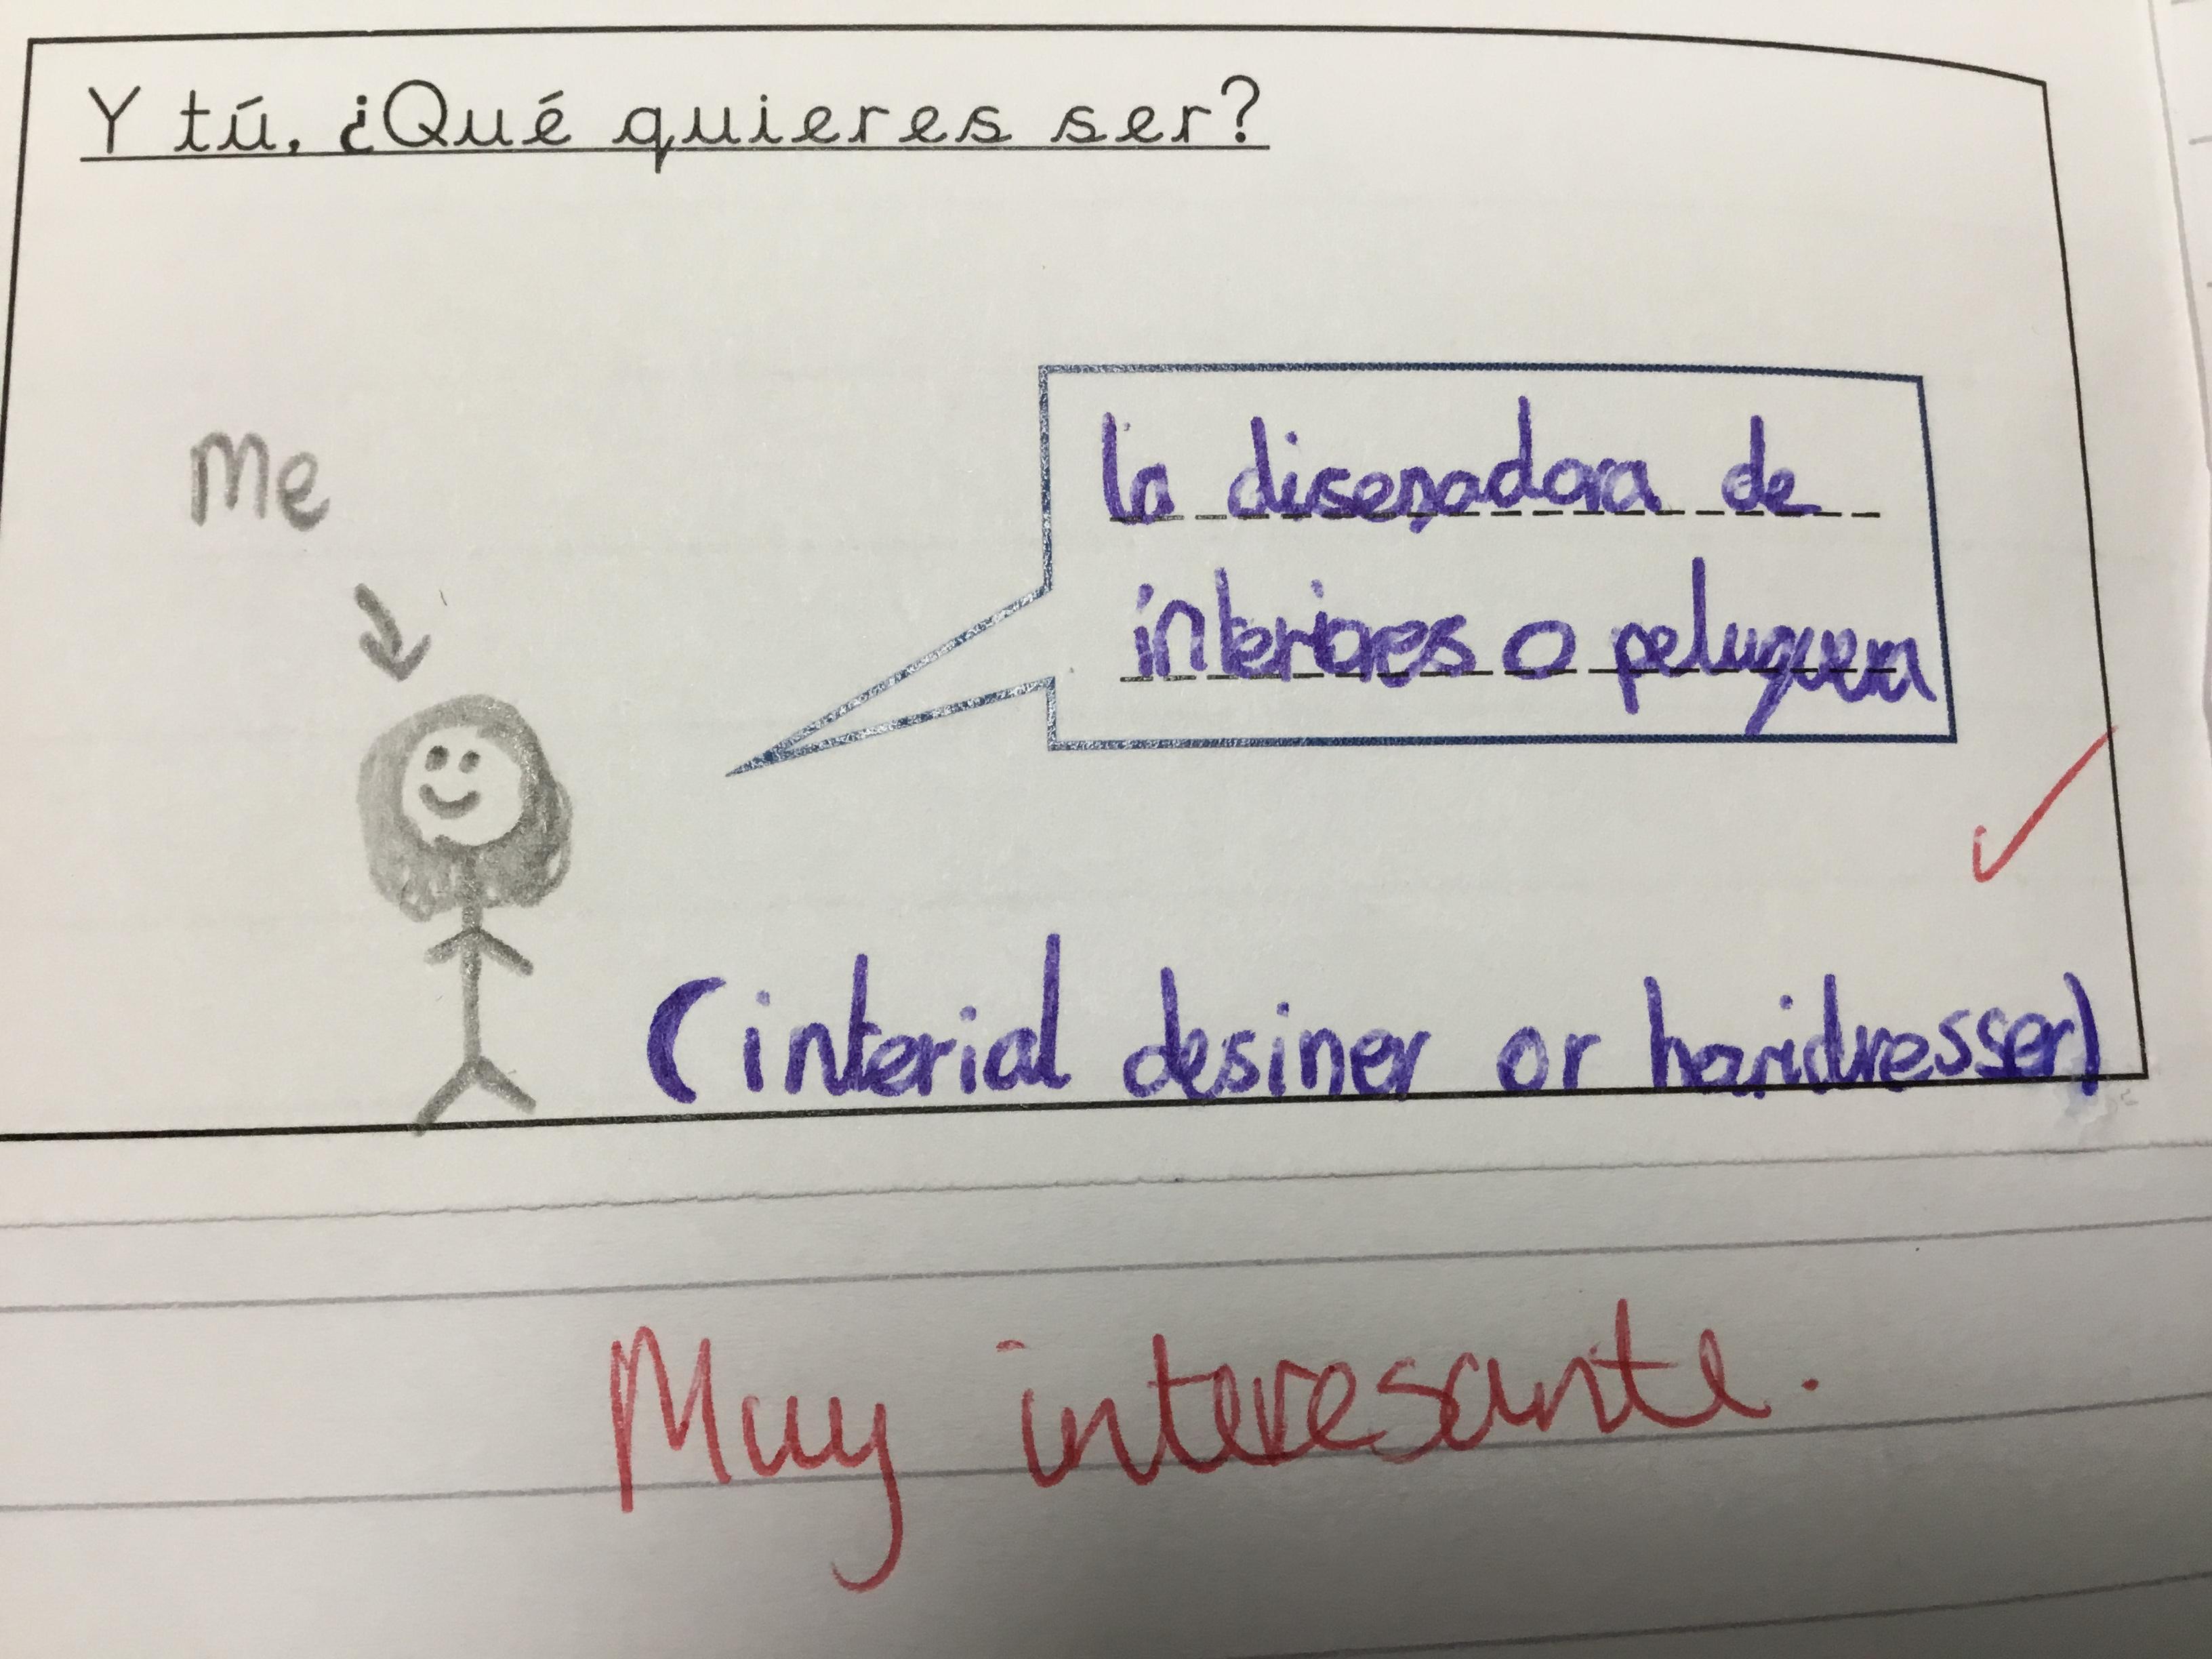 Y tú, ¿Qué quieres ser?
Me
la disenadora de
interiores o peluquera
(interial desiner or haridresser)
Muy interesante.